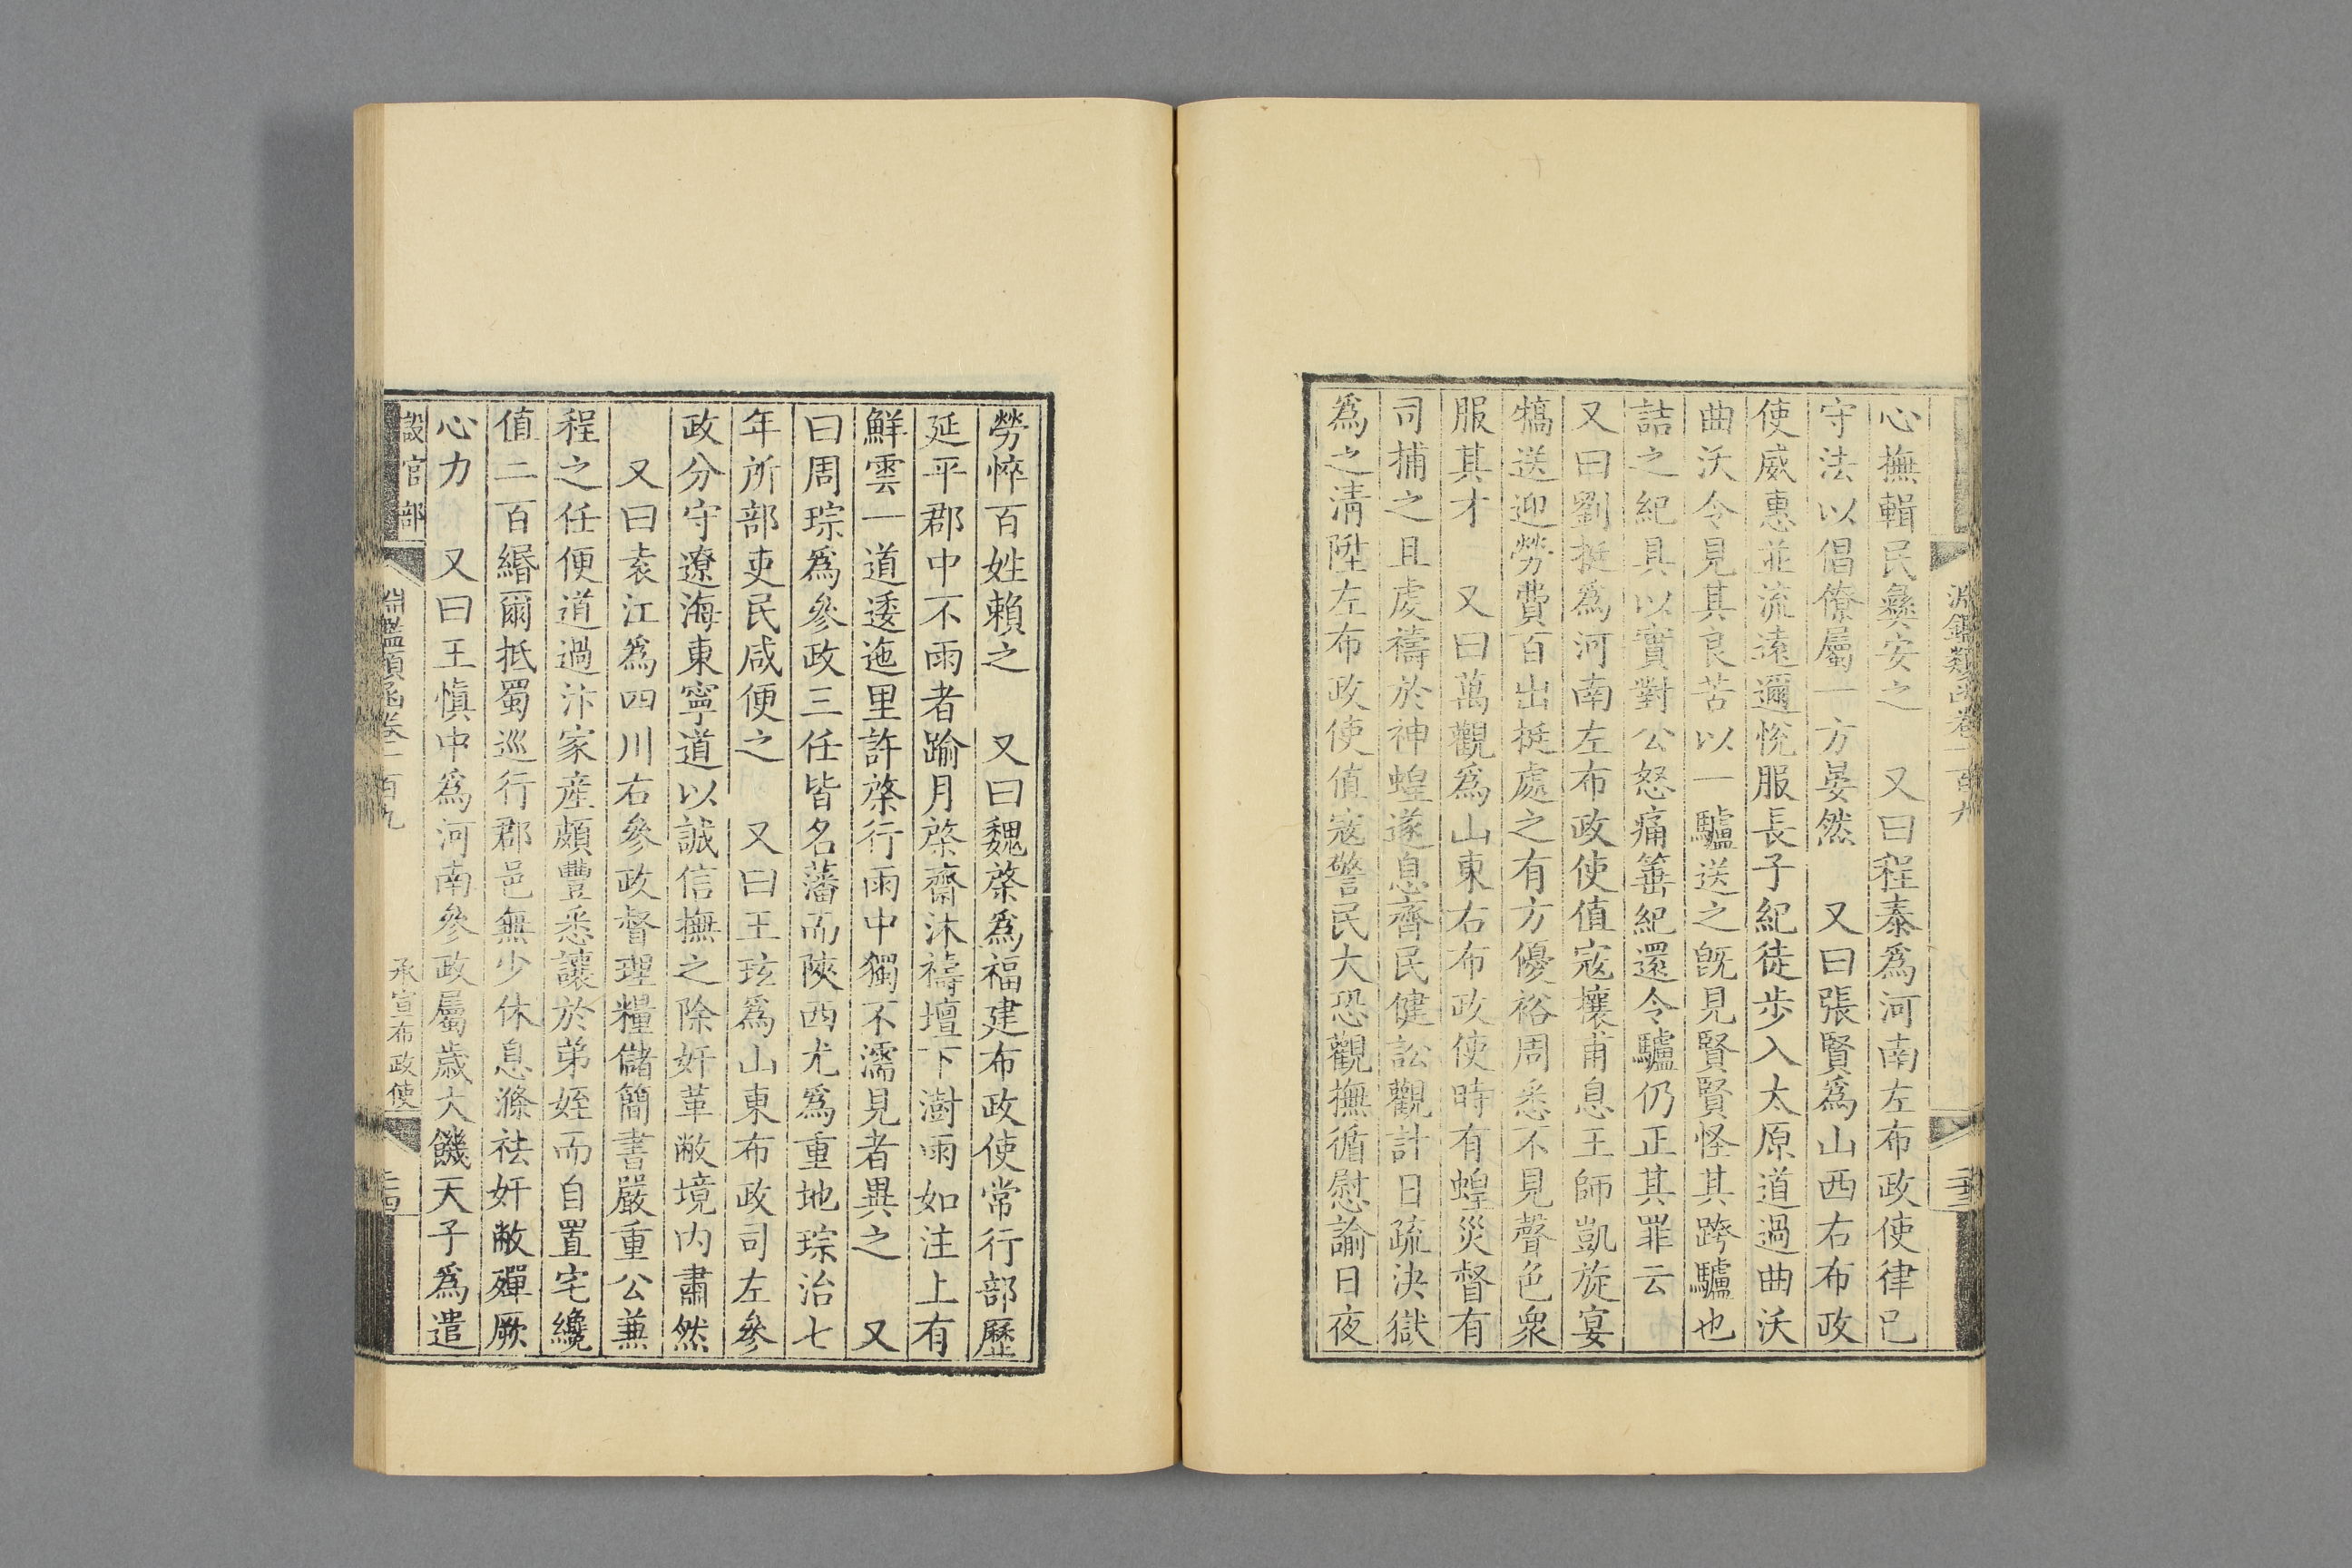 淵鑑類函卷一百九
心撫輯民彝安之 又曰程泰爲河南左布政使律已
守法以倡僚屬一方晏然 又曰張賢爲山西右布政
使威惠並流遠邇悅服長子紀徒步入太原道過曲沃
曲沃令見其良苦以一驢送之旣見賢賢怪其跨驢也
詰之紀具以實對公怒痛箠紀還令驢仍正其罪云
又曰劉挺爲河南左布政使值寇攘甫息王師凱旋宴
犒送迎勞費百出挺處之有方優裕周悉不見聲色衆
服其才 又曰萬觀爲山東右布政使時有蝗災督有
司捕之且虔禱於神蝗遂息齊民健訟觀計日疏決獄
爲之淸陞左布政使值寇警民大恐觀撫循慰諭日夜
勞悴百姓賴之 又曰魏棨爲福建布政使常行部歷
延平郡中不雨者踰月棨齋沐禱壇下澍雨如注上有
鮮雲一道逶迤里許棨行雨中獨不濡見者異之 又
曰周琮爲參政三任皆名藩而陝西尤爲重地琮治七
年所部吏民咸便之 又曰王玹爲山東布政司左參
政分守遼海東寧道以誠信撫之除奸革敝境內肅然
又曰袁江爲四川右參政督理糧儲簡書嚴重公兼
程之任便道過汴家產頗豐悉讓於弟姪而自置宅纔
值二百緡爾抵蜀巡行郡邑無少休息滌祛奸敝殫厥
心力 又曰王愼中爲河南參政屬歲大饑天子爲遣
設官部
淵鑑類函卷一百九
承宣布政使
二十四